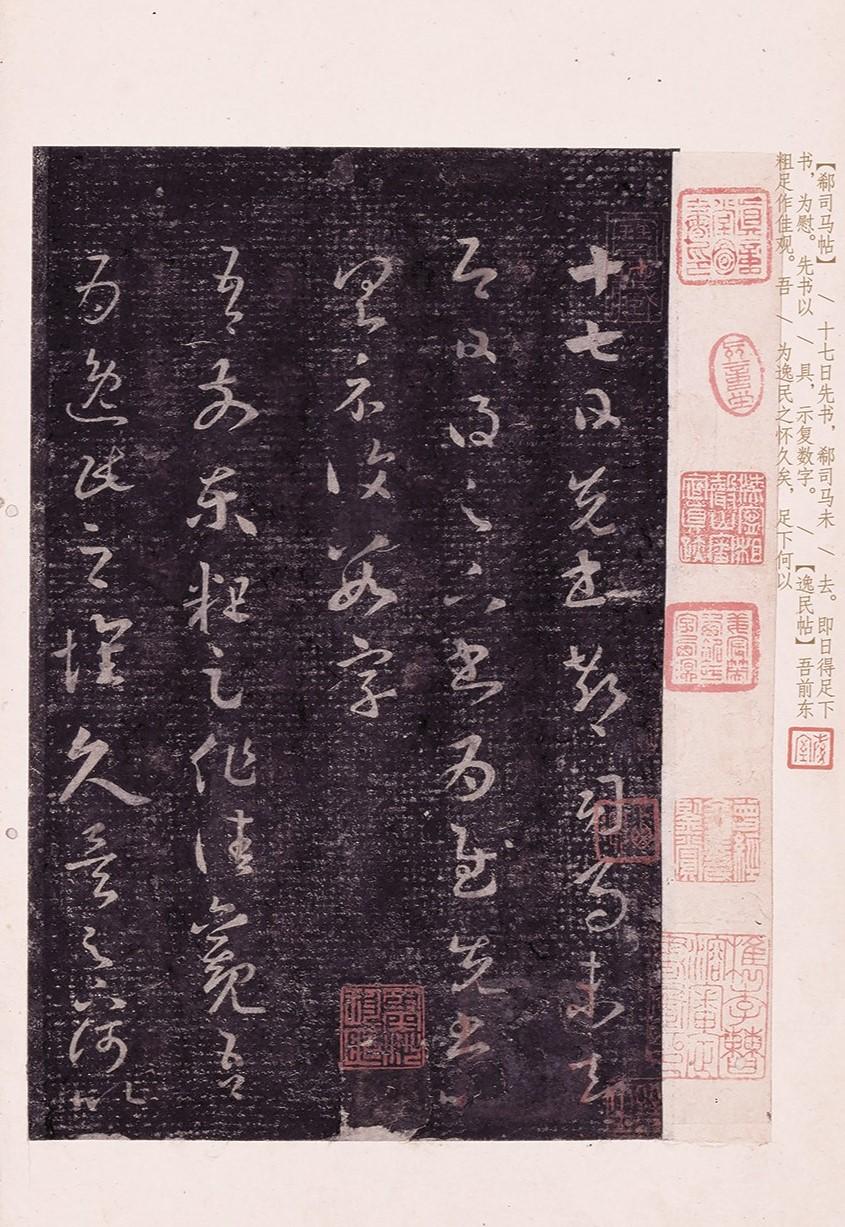 【郗司马帖】 \ 十七日先书，郗司马未 \ 去。即日得足下
书，为慰。先书以 \ 具，示复数字。 \ 【逸民帖】吾前东
粗足作佳观。吾 \ 为逸民之怀久矣，足下何以
十七日先書郗司馬未去
即日得足下書為慰先書以
具示復數字
吾前東粗足作佳觀吾
為逸民之懷久矣足下何以